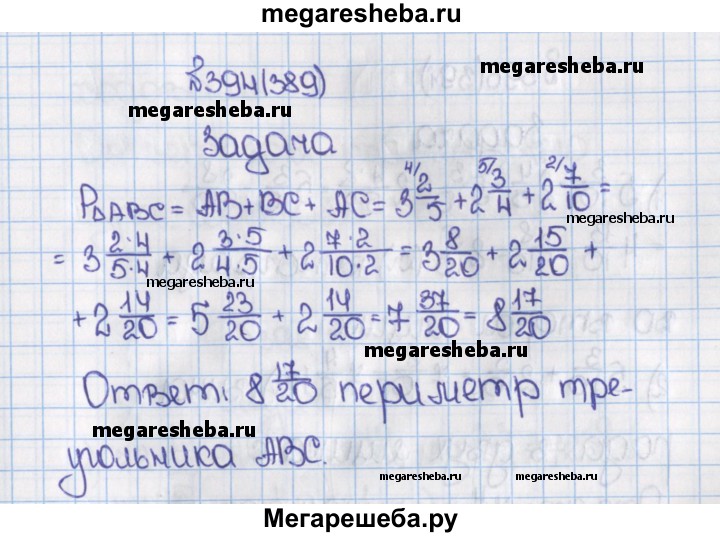 megaresheba.ru
№394(389)
megaresheba.ru
megaresheba.ru
Задача
P△ABC = AB+BC+ AC= 3 4/ 2/5 + 2 5/ 3/4 + 2 2/ 7/10 =
megaresheba.ru
= 3 2·4/5·4 + 2 3·5/4·5 + 2 7·2/10·2 = 3 8/20 + 2 15/20 +
megaresheba.ru
+ 2 14/20 = 5 23/20 + 2 14/20 = 7 37/20 = 8 17/20
megaresheba.ru
Ответ: 8 17/20 периметр тре-
megaresheba.ru
угольника ABC.
megaresheba.ru
megaresheba.ru
Мегарешеба.ру